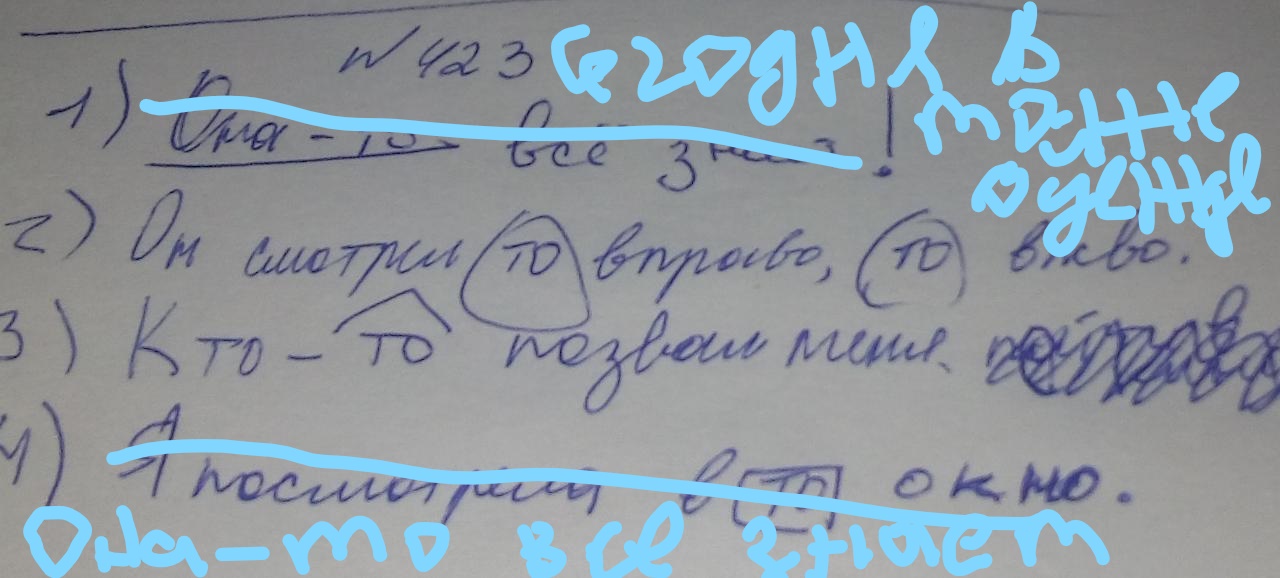 № 423 Сегодня в
той же
одежде
1) Она-то всё знает!
2) Он смотрел то вправо, то влево.
3) Кто-то позвал меня.
4) Я посмотрела в то окно.
Она-то все знает